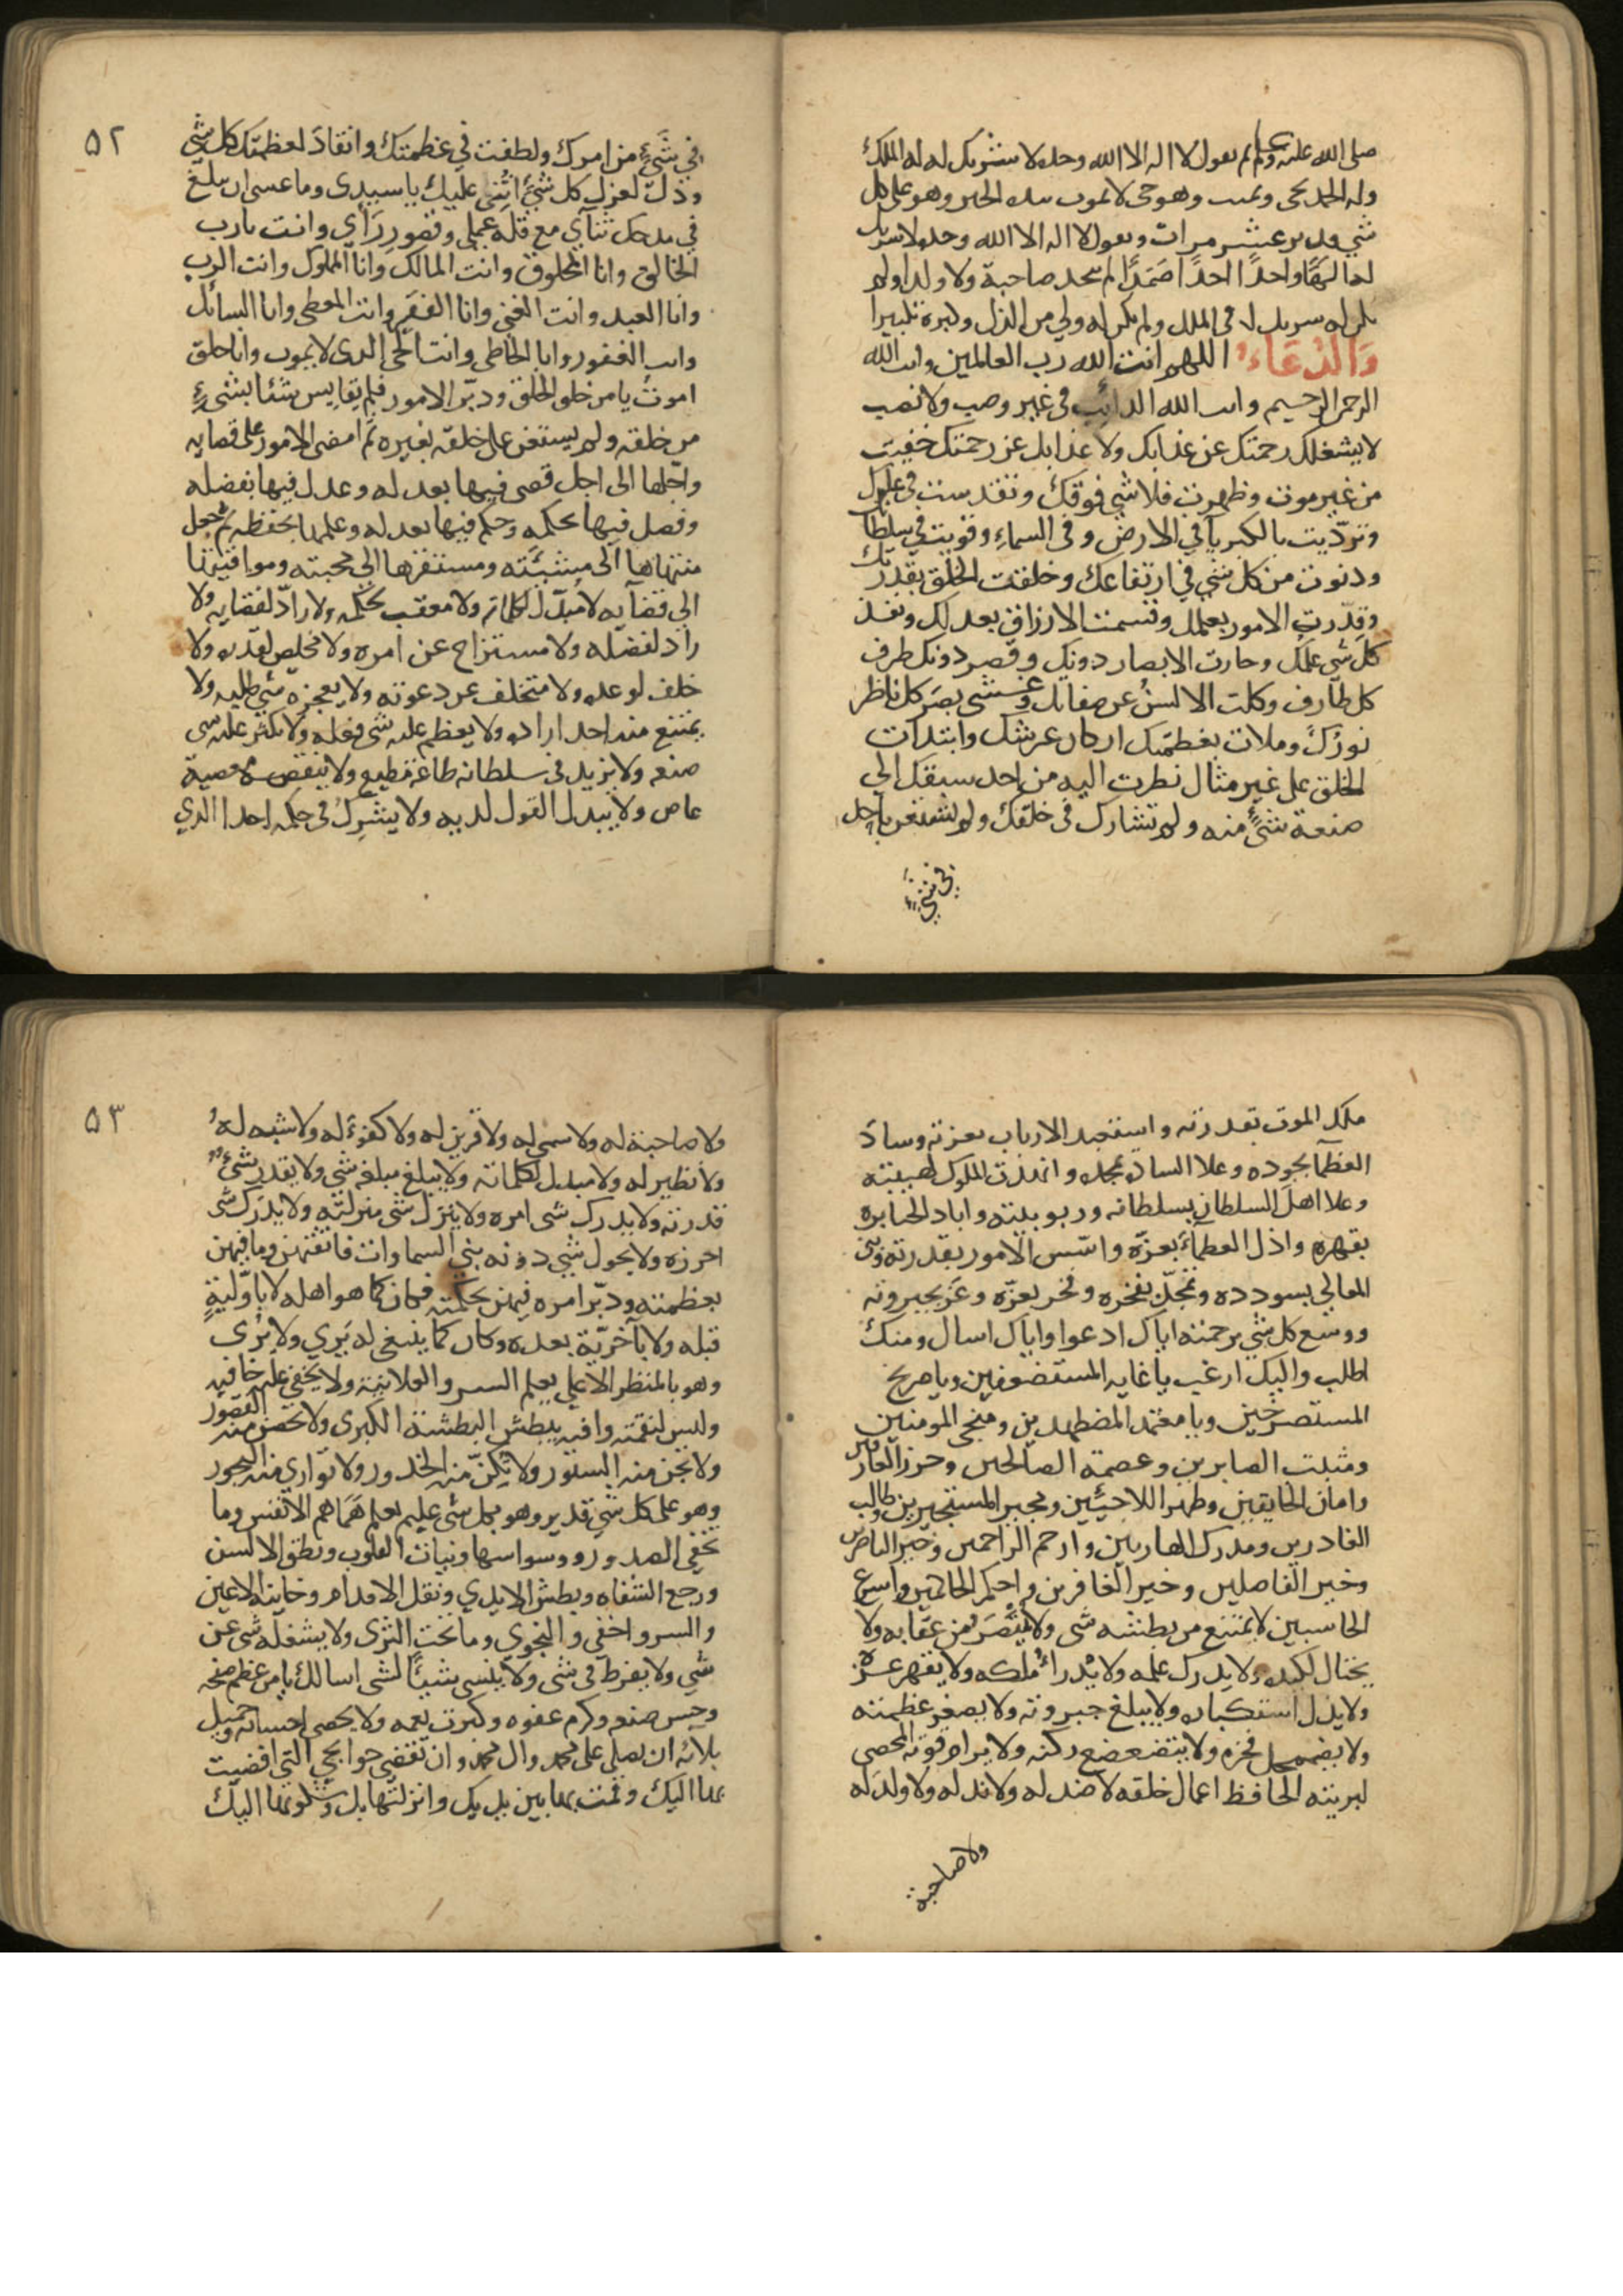 صلى الله عليه وسلم ثم يقول لا اله الا الله وحده لا شريك له له الملك
وله الحمد يحيى ويميت وهو حى لا يموت بيده الخير وهو على كل
شي قدير عشر مرات ويقول لا اله الا الله وحده لا شريك
له الهًا واحدًا احدًا صَمَدًا لم يتخد صاحبة ولا ولدا ولم
يكن له شريك له فى الملك ولم يكن له ولي من الذل وكبره تكبيرا
وَالدُعَاءُ اللهم انت الله رب العالمين وانت الله
الرحمن الرحيم وانت الله الدائب فى غير وصب ولا نصب
لا يشغلك رحمتك عن عذابك ولا عذابك عن رحمتك خفيت
من غير موت وظهرت فلا شي فوقك وتقدست في علوك
وتردّيت بالكبرياء في الارض وفى السماء وقويت في سلطانك
ودنوت من كل شي في ارتفاعك وخلقت الخلق بقدرتك
وقدّرت الامور بعلمك وقسمت الارزاق بعدلك ونفذ
كل شي علمك وحارت الابصار دونك وقصر دونك طرف
كل طارف وكلت الالسنُ عن صفاتك وغشى بصَر كل ناظر
نورُك وملات بعظمتك اركان عرشك وابتدات
الخلق على غير مثال نظرت اليه من احد سبقك الى
صنعة شيءٍ منه ولم تشارك فى خلقك ولم تستعن باحد
في شيءٍ
٥٢
في شَيءٍ من امرك ولطفت في عظمتك وانقادَ لعظمتك كل شي
وذلّ لعزك كل شيءٍ اثنى عليك يا سيدى وما عسى ان يبلغ
في مدحك ثنآي مع قلة عملي وقصورِ رَأي وانت يا رب
الخالق وانا المخلوق وانت المالك وانا المملوك وانت الرب
وانا العبد وانت الغني وانا الفقير وانت المعطي وانا السائل
وانت الغفور وانا الخاطي وانت الحي الدى لا يموت وانا خلق
اموتُ يا من خلق الخلق ودبّر الامور فلم يقايس شيئا بشيءٍ
من خلقه ولم يستعن على خلقه بغيره ثم امضى الامور على قضايه
واجّلها الى اجل قضى فيها بعدله وعدل فيها بفضله
وفصل فيها بحكمه وحكم فيها بعدله وعلمها بحفظه ثم جعل
منتهاها الى مشيّته ومستقرها الى محبته ومواقيتها
الى قضآيه لا مبدّل لكلماته ولا معقب لحكمه ولا رادّ لقضايه ولا
رادّ لفضله ولا مستزاح عن امره ولا مخلص لقدره ولا
خلف لوعده ولا متخلف عن دعوته ولا يعجزه شي طلبه ولا
يمتنع منه احد اراده ولا يعظم عليه شي فعله ولا يكثر عليه شى
صنعه ولا يزيد فى سلطانه طاعة مطيع ولا ينقصه معصية
عاص ولا يبدل القول لديه ولا يشرِكُ فى حكمه احدا الدي
ملك الموت بقدرته واستعبد الارباب بعزته وسادَ
العظمآ بجوده وعلا السادة بمجده وانهدت الملوك لهيبته
وعلا اهلَ السلطان بسلطانه وربوبيته واباد الجبابره
بقهره واذل العظمآء بعزّه واسّس الامور بقدرته وبنى
المعالي بسودده وتمجّد بفخره وفخر بعزّه وعَزّ بجبروته
ووسع كل شي برحمته اياك ادعوا واياك اسال ومنك
اطلب واليك ارغب يا غايه المستضعفين ويا صريخ
المستصرخين ويا معتمد المضطهدين ومنجى المومنين
ومثبت الصابرين وعصمه الصالحين وحرز العارفين
وامان الخايفين وظهر اللاجئين ومجير المستجيرين وطالب
الغادرين ومدرك الهاربين وارحم الراحمين وخير الناصرين
وخير الفاصلين وخير الغافرين واحكم الحاكمين واسرع
الحاسبين لا يمتنع من بطشه شى ولا يَنْتَصَر من عقابه ولا
يحتال لكيده ولا يدرك علمه ولا يُدراءُ ملكه ولا يقهر عزه
ولا يذل استكباره ولا يبلغ جبروته ولا يصغر عظمته
ولا يضمحل فخره ولا يتضعضع ركنه ولا يرام قوته المحصى
لبريته الحافظ اعمال خلقه لا ضد له ولا ند له ولا ولد له
ولا صاحبة
٥٣
ولا صاحبة له ولا سمي له ولا قرين له ولا كفوءَ له ولا شبه لهُ
ولا نظير له ولا مبدل لكلماته ولا يبلغ مبلغه شي ولا يقدر شيءٌ
قدرته ولا يدرك شى امره ولا ينزل شى منزلته ولا يدرَك شى
احرزه ولا يحول شي دونه بنى السماوات فاتقنهن وما فيهن
بعظمته ودبّر امره فيهن بحكمته فكان كما هو اهله لا باوّليةٍ
قبله ولا باخريّة بعده وكان كما ينبغى له يَري ولا يرُى
وهو بالمنظر الاعلى يعلم السر والعلانية ولا يخفي عليه خافيه
وليس لنقمته واقيه يبطش البطشة الكبرى ولا تحصن منه القصور
ولا تجن منه الستور ولا تكنّ منه الخدور ولا تواري منه البحور
وهو على كل شي قدير وهو بكل شى عليم يعلم هَمَاهم الانفس وما
تخفي الصدور ووسواسها ونيات القلوب ونطق الالسن
ورجع الشفاه وبطش الايدي ونقل الاقدام وخاينه الاعين
والسر واخفى والنجوي وما تحت الثرى ولا يشغله شى عن
شي ولا يفرط فى شى ولا ينسى شيئًا لشى اسالك يا من عظم صفحه
وحسن صنعه وكرم عفوه وكثرت نعمه ولا يحصى احسانه وجميل
بلائه ان يصلى على محمد وال محمد وان تقضى حوايجي التى افضيت
بها اليك وقمت بها بين يديك وانزلتها بك وشكوتها اليك